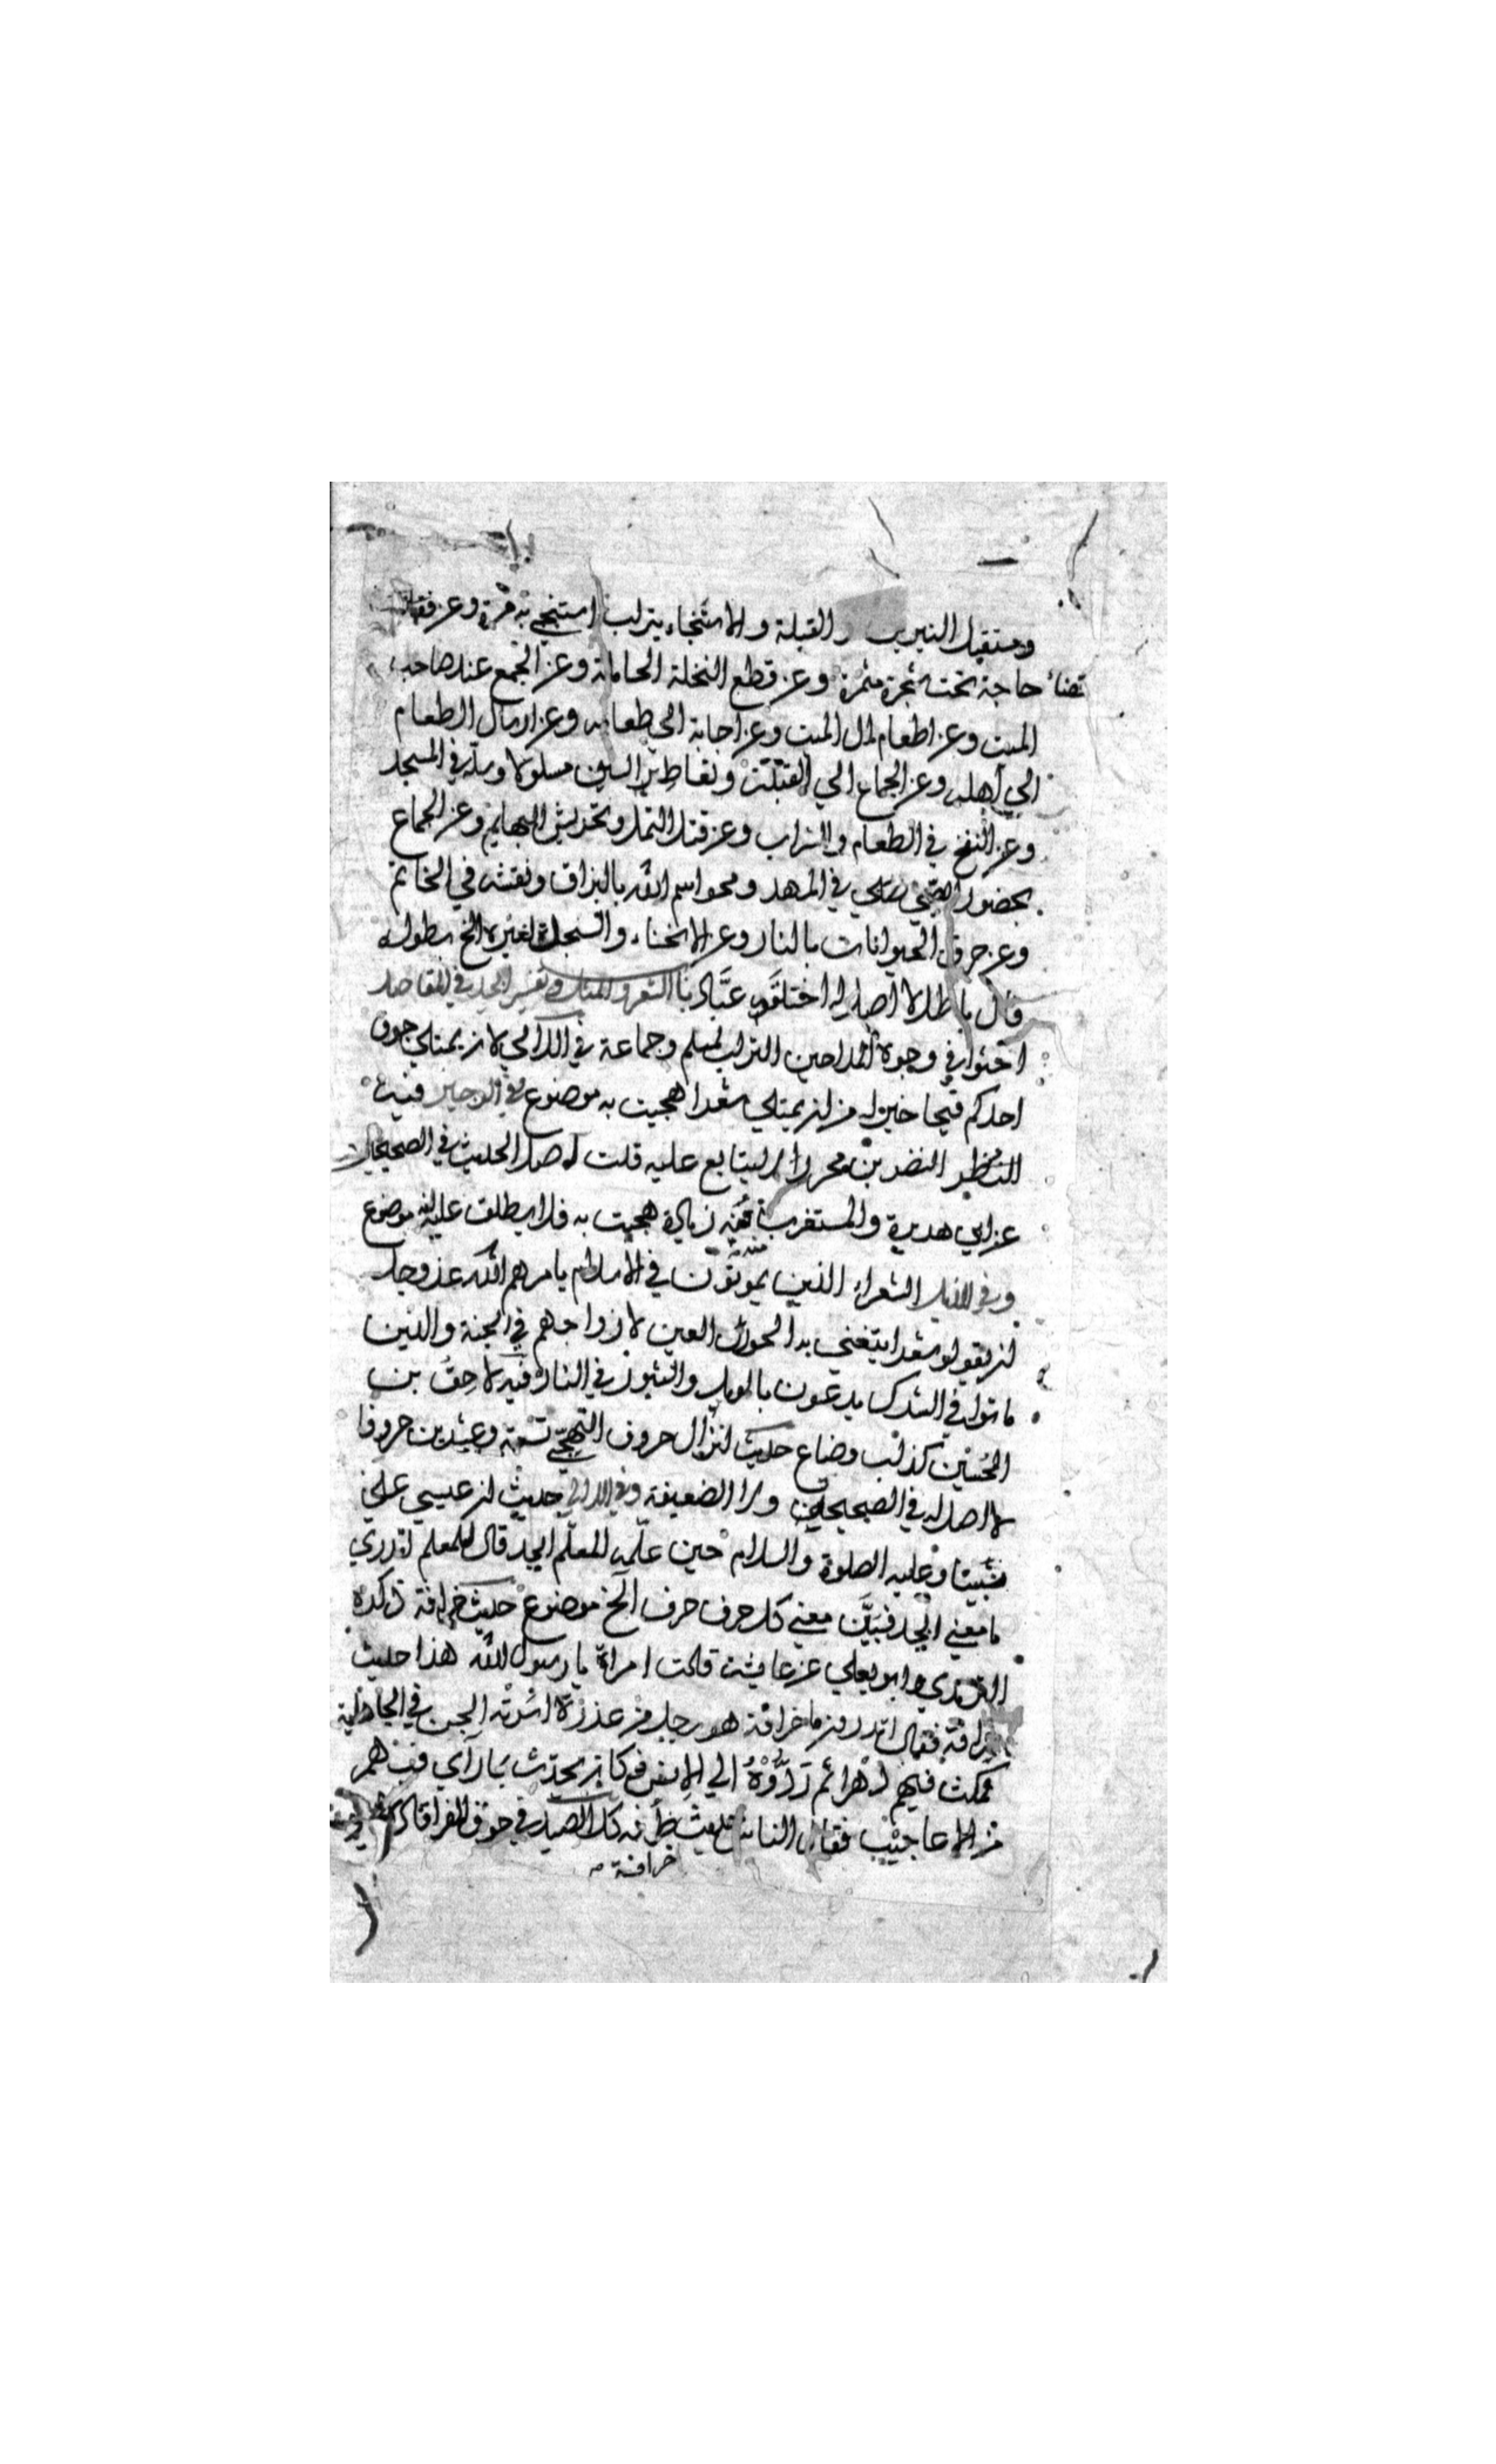 ومستقبل النيرين والقبلة والاستنجاء بتراب استنجي به مرة وعن
قضاء حاجة تحت شجرة مثمرة وعن قطع النخلة الحاملة وعن التجمع عند صاحب
الميت وعن اطعام ال الميت وعن اجابة الي طعامه وعن ارسال الطعام
الي اهله وعن الجماع الي القبلة وتعاطي السيف مسلولا وسله في المسجد
وعن النفخ في الطعام والشراب وعن قتل النمل وتحريش البهايم وعن الجماع
بحضور الصبي في المهد ومحو اسم الله بالبزاق ونقشه في الخاتم
وعن حرق الحيوانات بالنار وعن الانحناء والسجدة لغيره الخ بطوله
قال باطل لا اصل له اختلقه عباد باب الشعر والمثل وتفسير ابجد في المقاصد
احثوا في وجوه المداحين التراب لمسلم وجماعة في اللآلي لان يمتلي جوف
احدكم قيحا خير له من ان يمتلي شعرا هجيت به موضوع وفي الوجيز فيه
النضر بن محرز لا يتابع عليه قلت اصل الحديث في الصحيحين
عن ابي هريرة والمستغرب منه زيادة هجيت به فلا يطلق عليه انه موضوع
وفي الذيل الشعراء الذين يموتون في الاسلام يامرهم الله عز وجل
ان يقولوا شعرا يتغني به الحور العين لازواجهم في الجنة والذين
ماتوا في الشرك يدعون بالويل والثبور في النار فيه لاحق بن
الحسين كذاب وضاع حديث انزال حروف التهجي تسعة وعشرين حروفا
لا اصل له في الصحيحين ولا الضعيفة وفي اللآلي حديث ان عيسي علي
نبينا وعليه الصلوة والسلام حين علمه المعلم ابجد قال للمعلم اتدري
ما معني ابجد فبين معني كل حرف حرف الخ موضوع حديث خرافة ذكره
الترمذي وابو يعلي عن عايشة قالت امراة يا رسول الله هذا حديث
خرافة فقال اتدرون ما خرافة هو رجل من عذرة اسرته الجن في الجاهلية
فمكث فيهم دهرا ثم ردوه الي الانس فكان يحدث بما راي فيهم
من الاعاجيب فقال الناس حديث كل الصيد في جوف الفرا قاله
خرافة